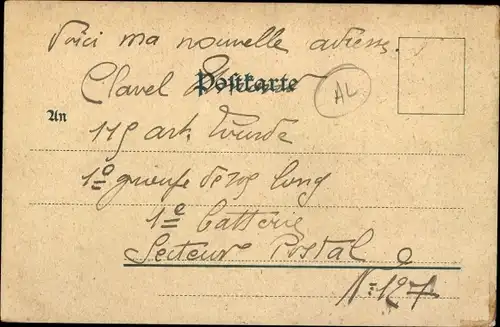 Voici ma nouvelle adresse.
Clavel
Postkarte
AL
An
115 art. Lourde
1º groupe de 105 long
1º Batterie
Secteur Postal
Nº 127